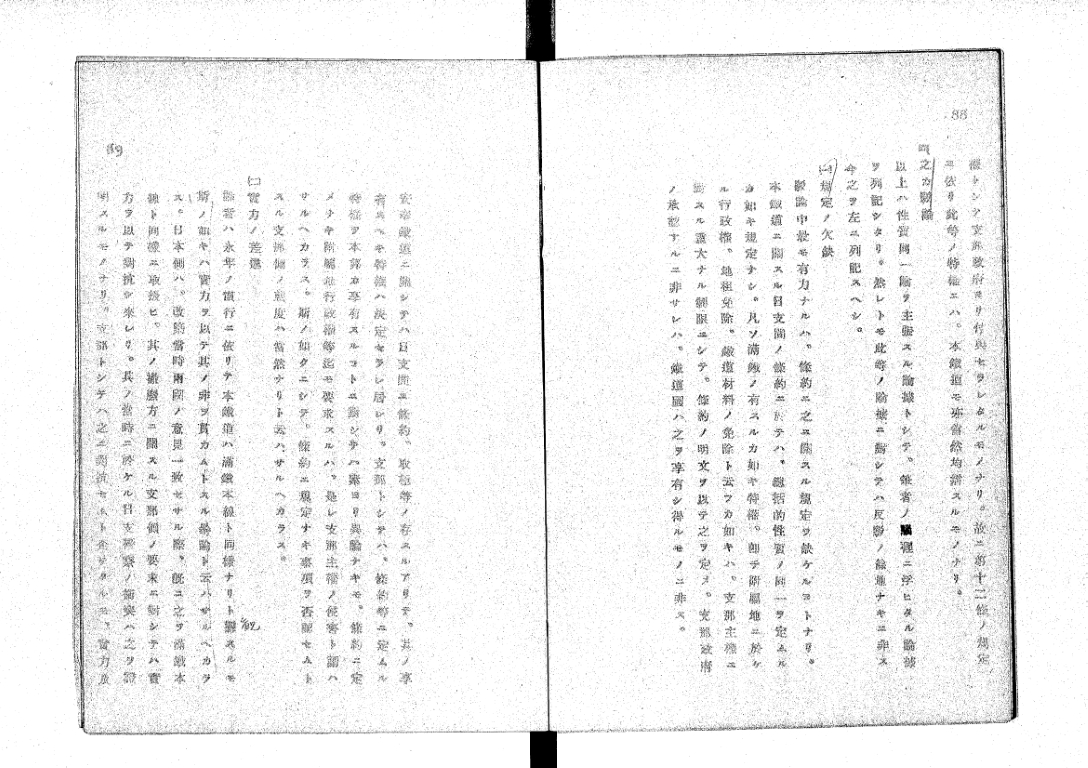 88
權トシテ支那政府ヨリ付與セラレタルモノナリ。故ニ第十二條ノ規定
ニ依リ此等ノ特權ニハ、本鐵道モ亦當然均霑スルモノナリ。
之カ駁論
以上ハ性質同一論ヲ主張スル論據トシテ、筆者ノ腦裡ニ浮ヒタル論據
ヲ列記シタリ。然レトモ此等ノ論據ニ對シテハ反駁ノ餘地ナキニ非ス
今之ヲ左ニ列記スヘシ。
(一)規定ノ欠缺
駁論中最モ有力ナルハ、條約ニ之ニ關スル規定ヲ缺ケルコトナリ。
本鐵道ニ關スル日支間ノ條約ニ於テハ、總括的性質ノ同一ヲ定ムル
カ如キ規定ナシ。凡ソ滿鐵ノ有スルカ如キ特權、卽チ附屬地ニ於ケ
ル行政權、地租免除、鐵道材料ノ免除ト云フカ如キハ、支那主權ニ
對スル重大ナル制限ニシテ、條約ノ明文ヲ以テ之ヲ定メ、支那政府
ノ承認スルニ非サレハ、鐵道國ハ之ヲ享有シ得ルモノニ非ス。
89
安奉鐵道ニ關シテハ日支間ニ條約、取極等ノ存スルアリテ、其ノ享
有スヘキ特權ハ決定セラレ居レリ。支那トシテハ、條約等ニ定ムル
特權ヲ本鐵カ享有スルコトニ關シテハ素ヨリ異論ナキモ、條約ニ定
メナキ附屬地行政權等迄モ要求スルハ、是レ支那主權ノ侵害ト謂ハ
サルヘカラス。斯ノ如クニシテ、條約ニ規定ナキ事項ヲ否認セムト
スル支那側ノ態度ハ當然ナリト云ハサルヘカラス。
(二)實力ノ差違
論者ハ永年ノ慣行ニ依リテ本鐵道ハ滿鐵本線ト同樣ナリト謂スルモ
斯ノ如キハ實力ヲ以テ其ノ非ヲ貫カムトスル暴論ト云ハサルヘカラ
ス。日本側ハ、改築當時兩國ノ意見一致セサル際、既ニ之ヲ滿鐵本
線ト同樣ニ取扱ヒ、其ノ撤廢方ニ關スル支那側ノ要求ニ對シテハ實
力ヲ以テ對抗シ來レリ。其ノ當時ニ於ケル日支軍警ノ衝突ハ之ヲ證
明スルモノナリ。支那トシテハ之ニ對抗セムト企テタルモ、實力及